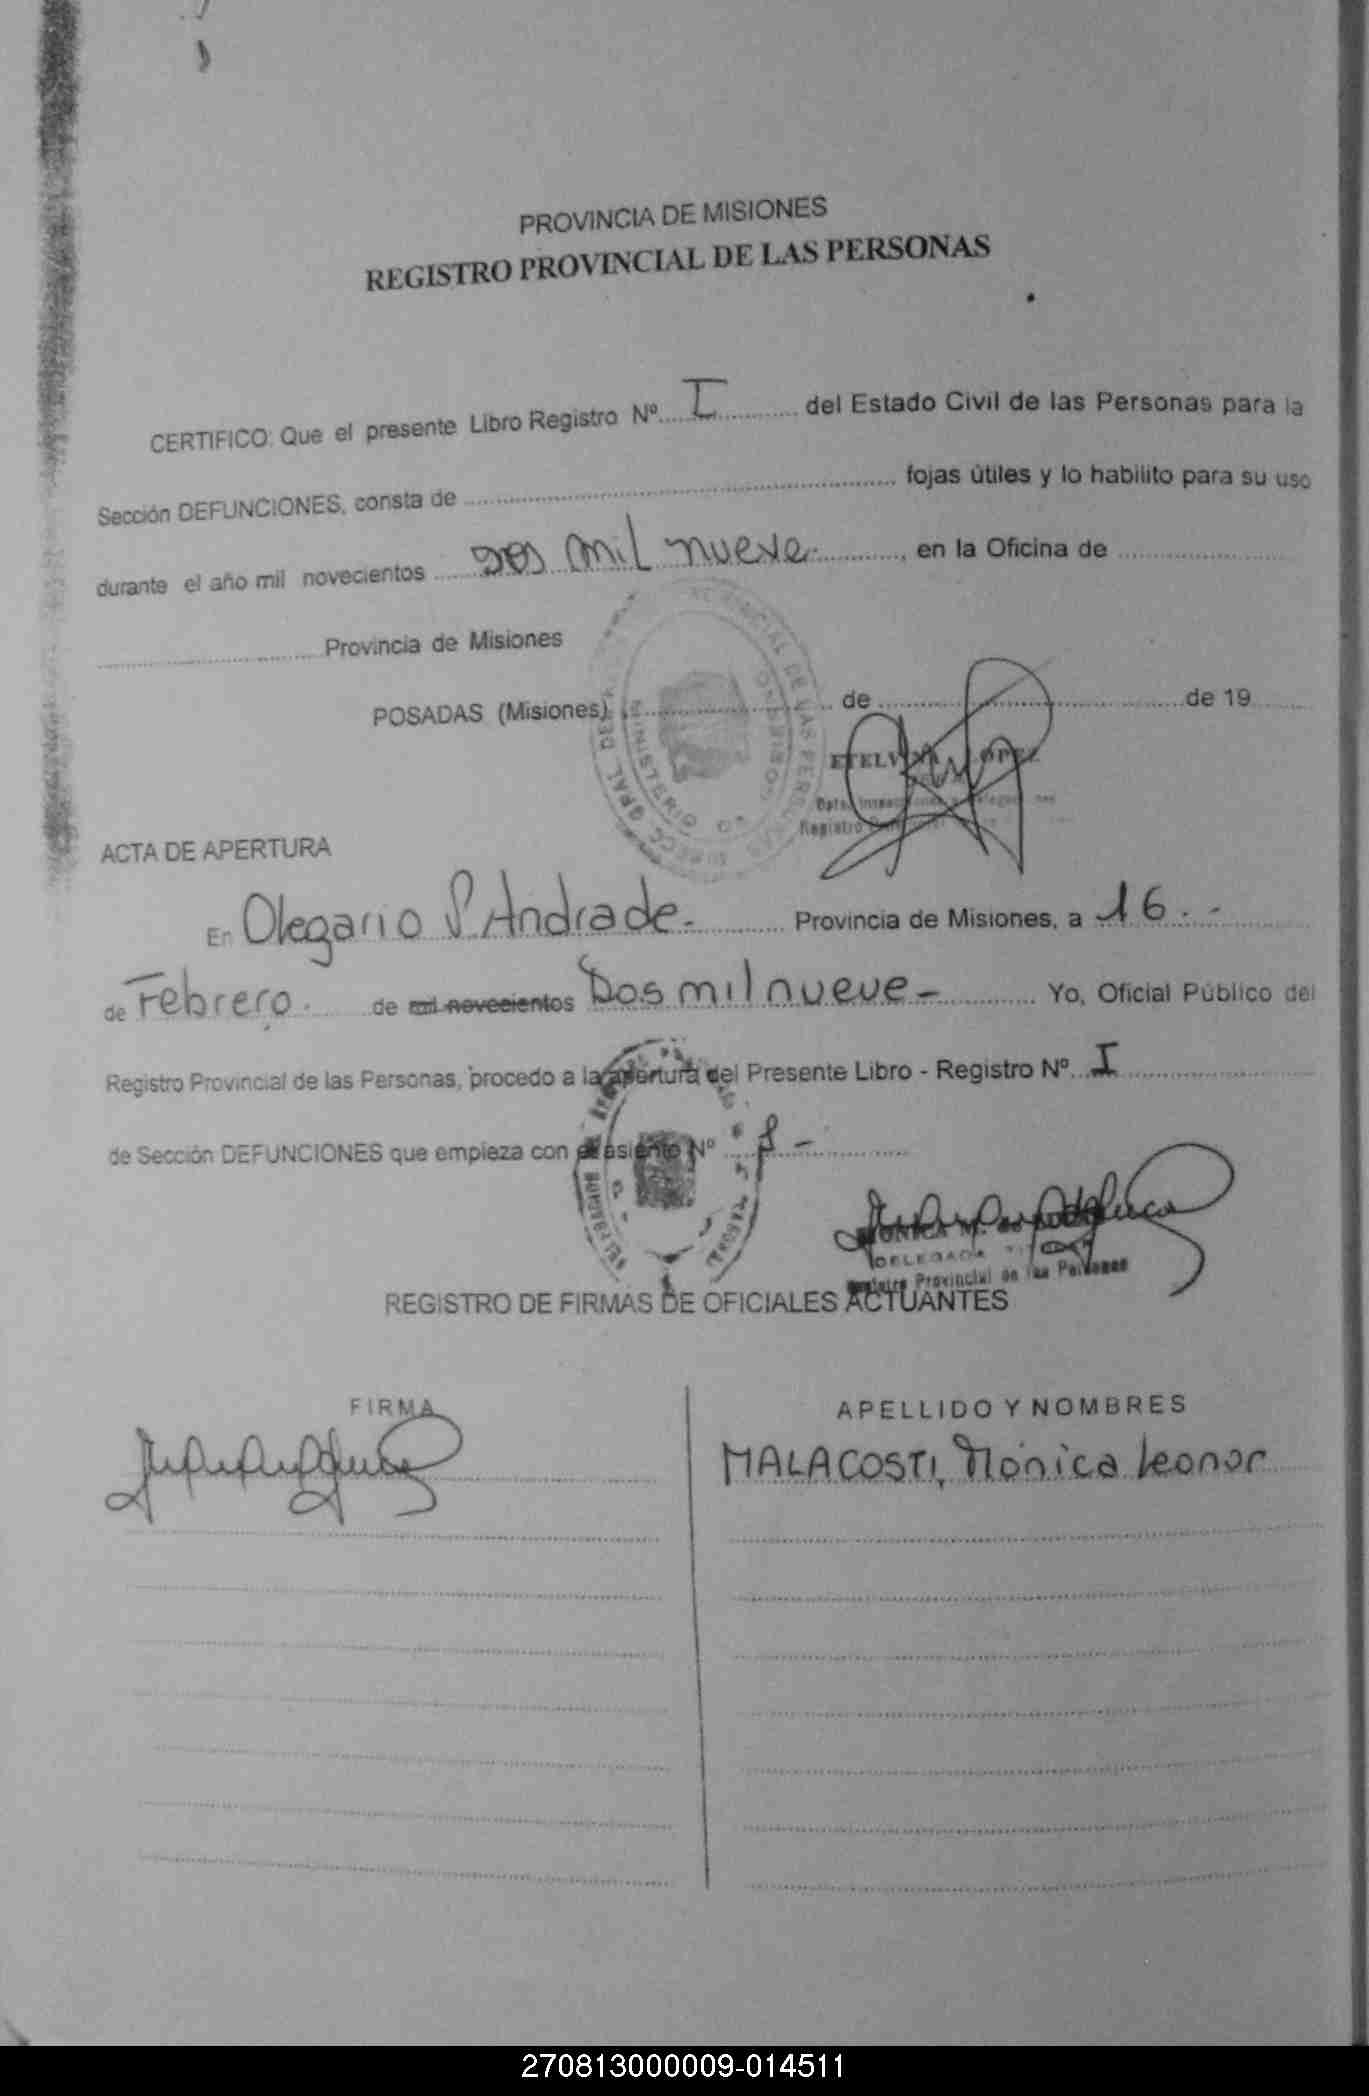 PROVINCIA DE MISIONES
REGISTRO PROVINCIAL DE LAS PERSONAS
CERTIFICO: Que el presente Libro Registro Nº I del Estado Civil de las Personas para la
Sección DEFUNCIONES, consta de fojas útiles y lo habilito para su uso
durante el año mil novecientos Dos mil nueve.-, en la Oficina de
Provincia de Misiones
POSADAS (Misiones) de de 19
ETELVINA LOPEZ
Registro
ACTA DE APERTURA
En Olegario V. Andrade.- Provincia de Misiones, a 16.-
de Febrero. de mil novecientos Dos mil nueve- Yo, Oficial Público del
Registro Provincial de las Personas, procedo a la apertura del Presente Libro - Registro Nº I
de Sección DEFUNCIONES que empieza con el asiento Nº
MONICA M.
DELEGADA
Registro Provincial de las Personas
REGISTRO DE FIRMAS DE OFICIALES ACTUANTES
FIRMA APELLIDO Y NOMBRES
MALACOSTI, Mónica Leonor
270813000009-014511